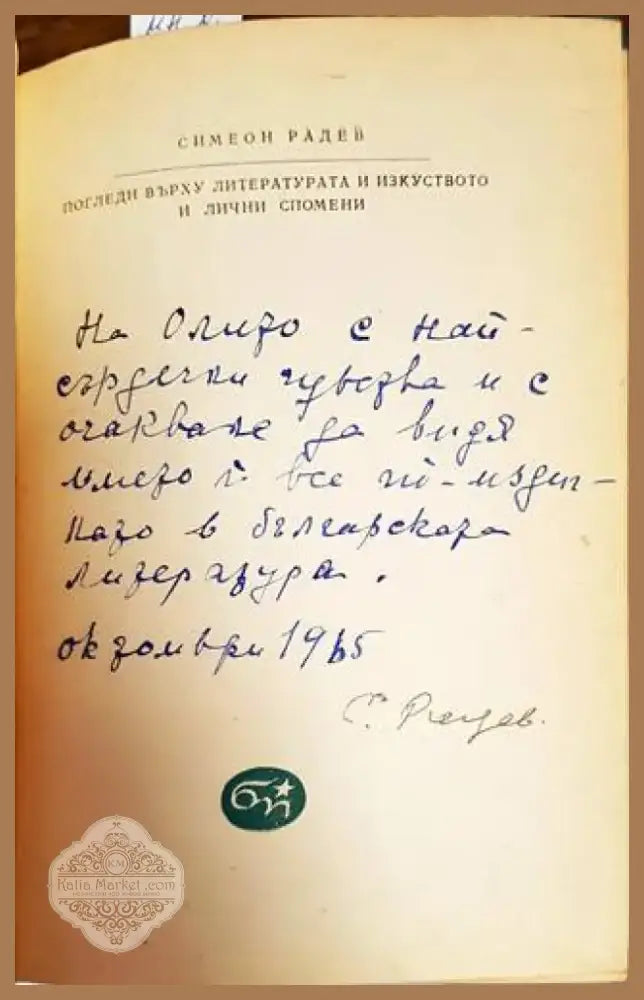 СИМЕОН РАДЕВ
ПОГЛЕДИ ВЪРХУ ЛИТЕРАТУРАТА И ИЗКУСТВОТО
И ЛИЧНИ СПОМЕНИ
На с най-
сърдечни чувства и с
очакване да видя
името ѝ все по-издиг-
нато в българската
литература.
октомври 1965
С. Радев.
бп
KM
Kalia Market .com